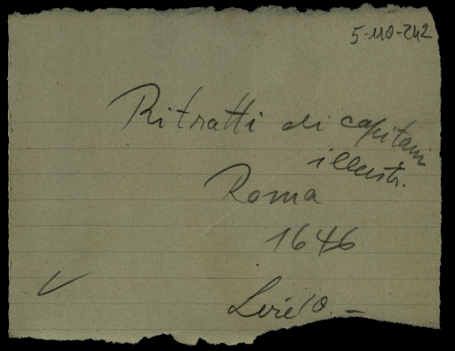 5-110-242
Ritratti di capitani
illustr.
Roma
1646